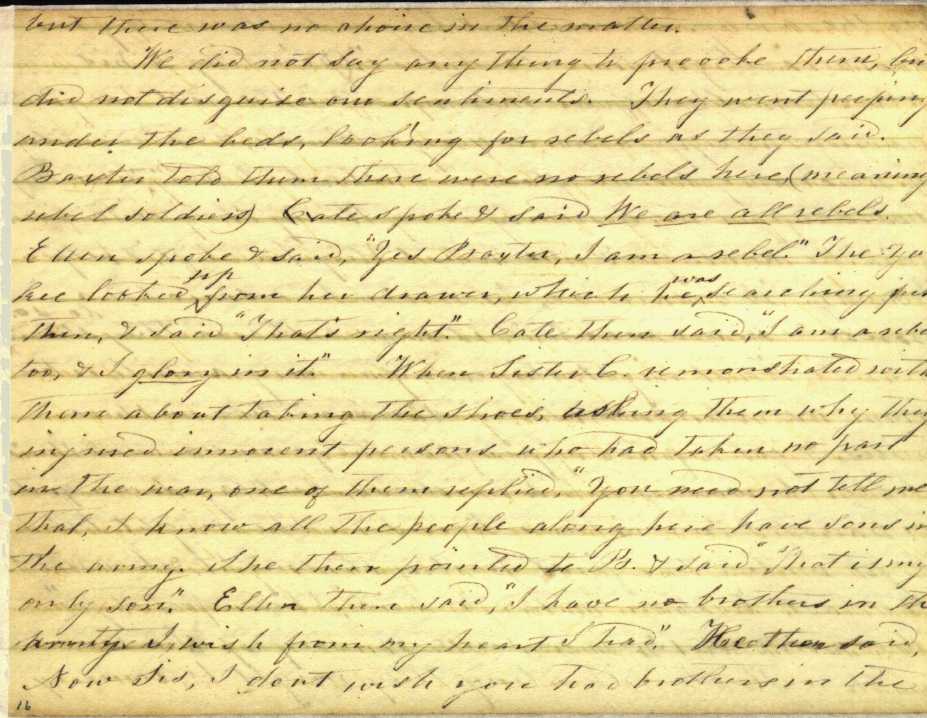 but there was no choice in the matter.
We did not say any thing to provoke them, but
did not disguise our sentiments. They went peeping
under the beds, looking for rebels as they said.
Baxter told them there were no rebels here (meaning
rebel soldiers) Cate spoke & said We are all rebels.
Ellen spoke & said, "Yes Baxter, I am a rebel." The Yan
kee looked up from her drawer, which he was searching just
then, & said "That's right." Cate then said, "I am a rebel
too, & I glory in it." When Sister C. remonstrated with
them about taking the shoes, asking them why they
injured innocent persons who had taken no part
in the war, one of them replied, "You need not tell me
that, I know all the people along here have sons in
the army. She then pointed to B. & said "That is my
only son." Ellen then said, "I have no brothers in the
army. I wish from my heart I had." He then said,
Now Sis, I dont wish you had brothers in the
16